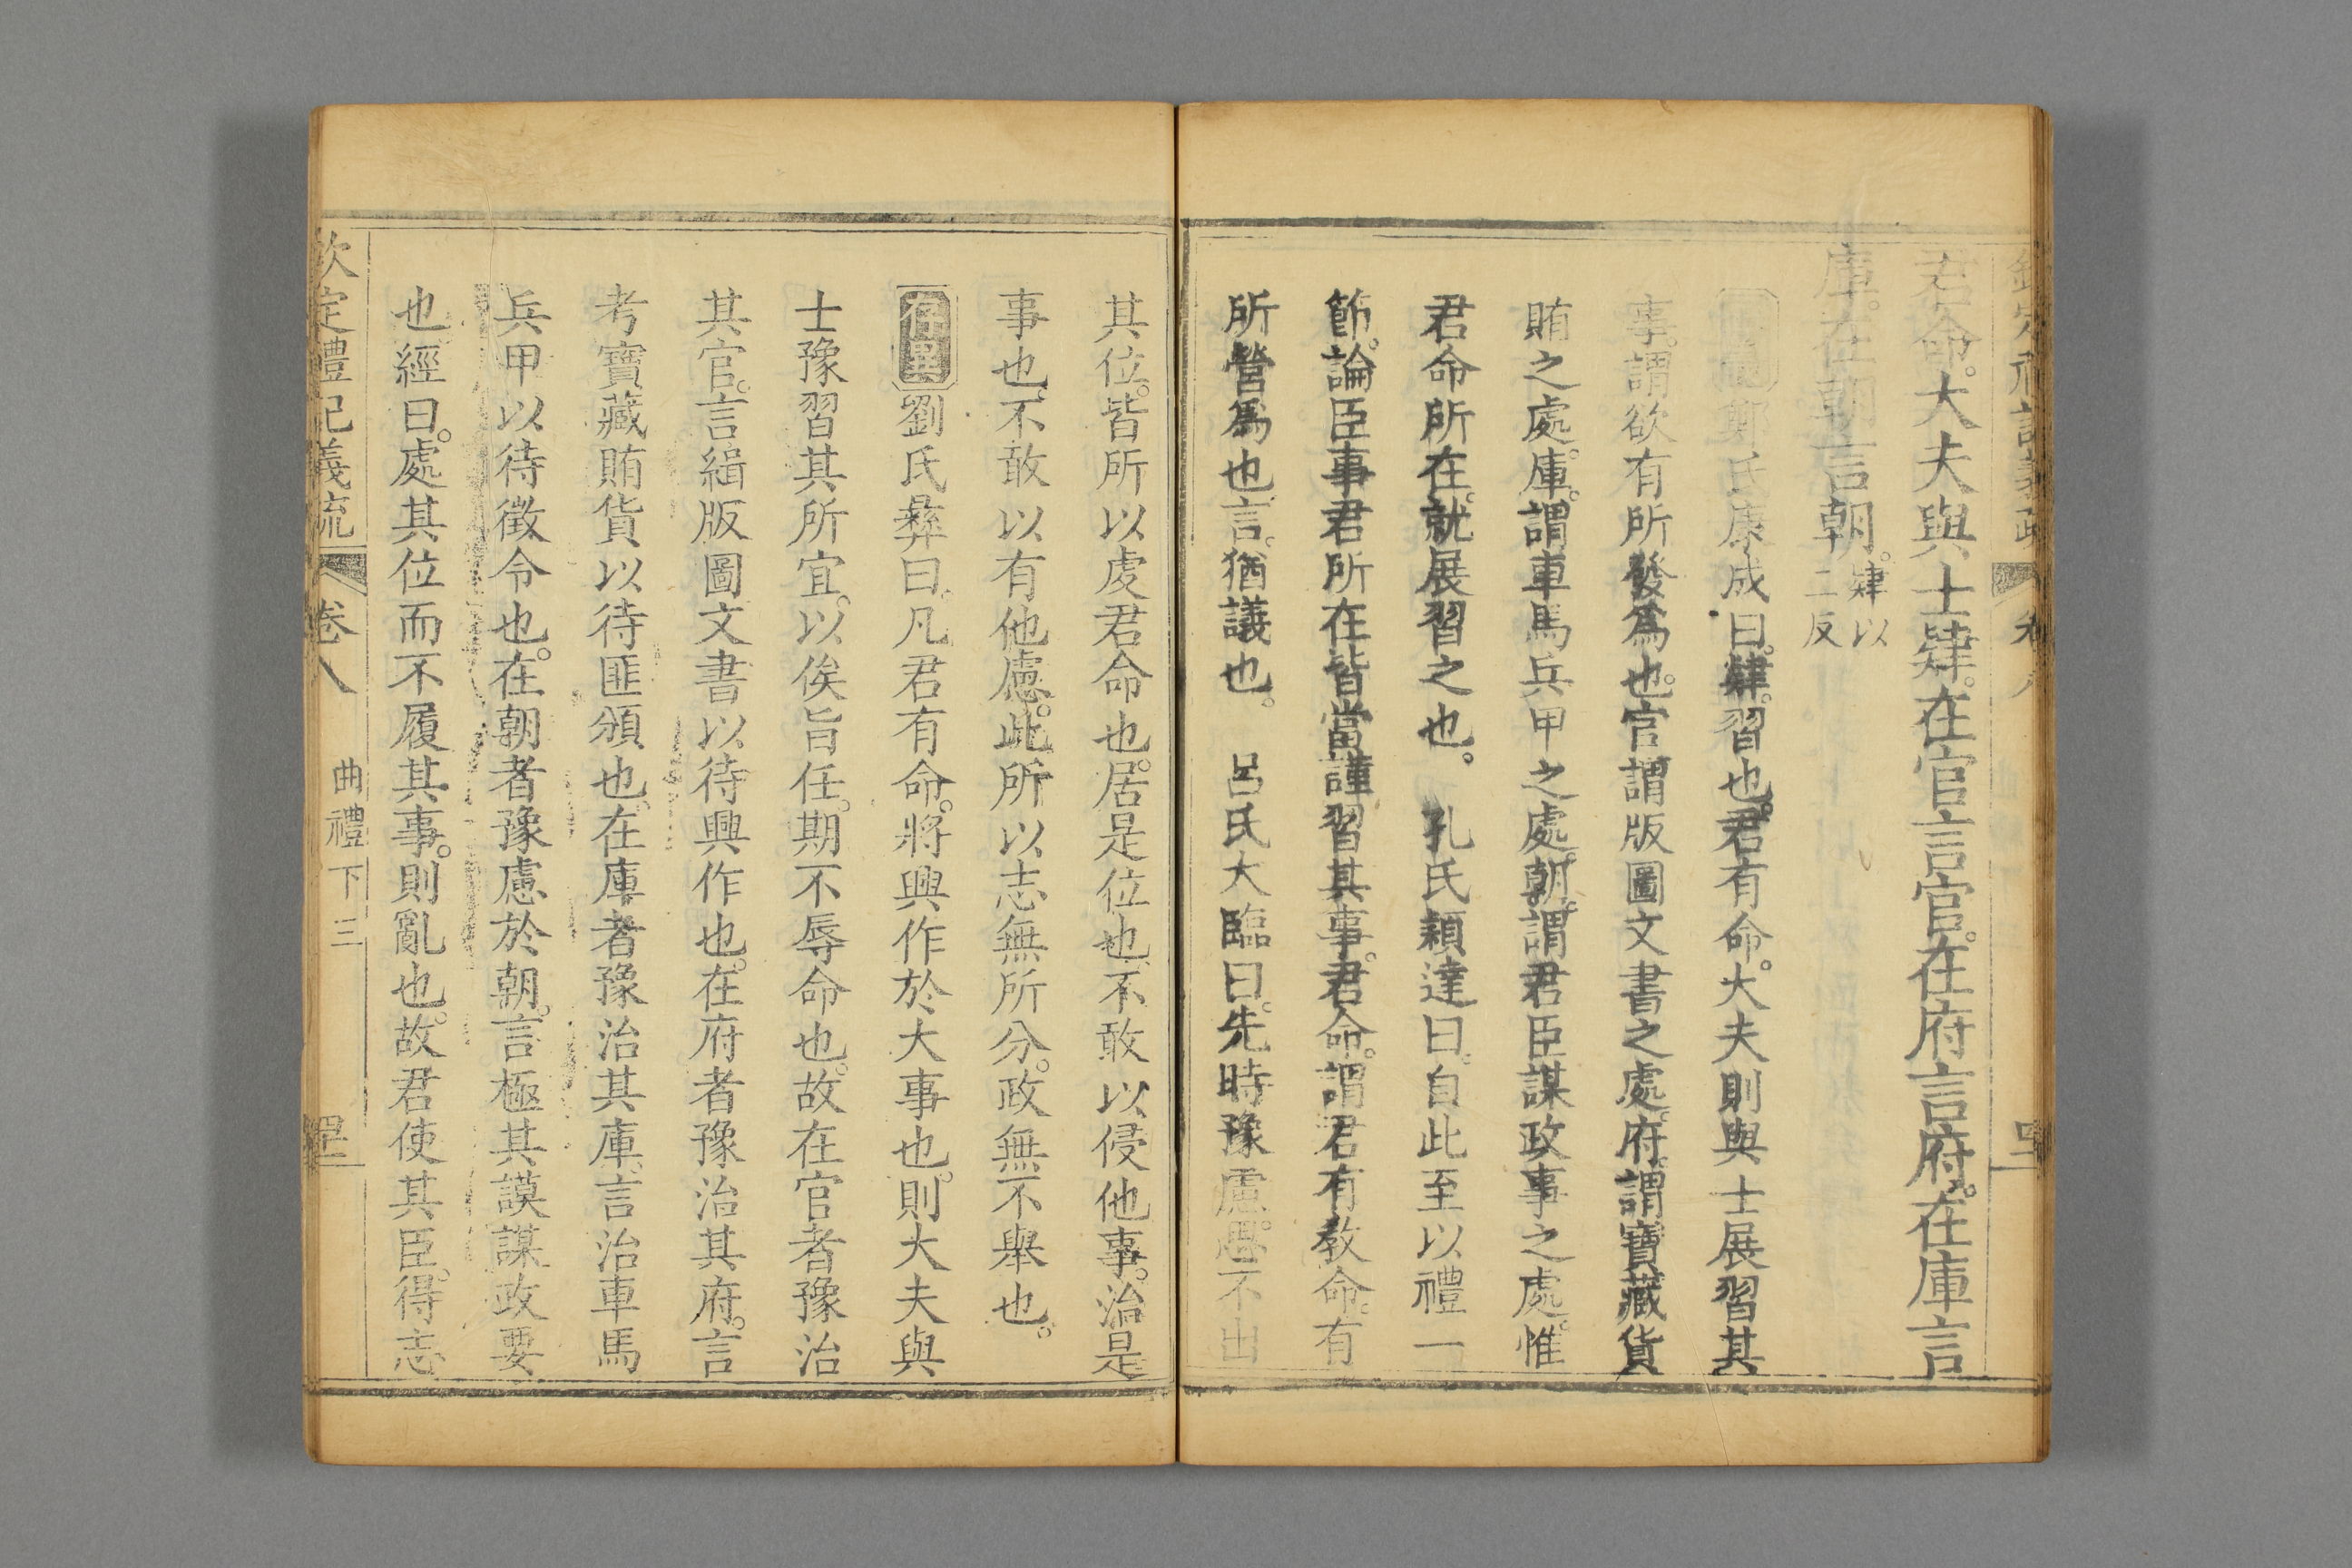 君命。大夫與士肄。在官言官。在府言府。在庫言
庫。在朝言朝。肄以二反
鄭氏康成曰。肄。習也。君有命。大夫則與士展習其
事。謂欲有所發爲也。官謂版圖文書之處。府。謂寶藏貨
賄之處。庫。謂車馬兵甲之處。朝。謂君臣謀政事之處。惟
君命所在。就展習之也。 孔氏穎達曰。自此至以禮一
節。論臣事君所在皆當謹習其事。君命。謂君有教命。有
所營爲也。言。猶議也。 呂氏大臨曰。先時豫慮。思不出
其位。皆所以虔君命也。居是位也。不敢以侵他事。治是
事也。不敢以有他慮。此所以志無所分。政無不舉也。
存異劉氏彝曰。凡君有命。將興作於大事也。則大夫與
士豫習其所宜。以俟旨任。期不辱命也。故在官者豫治
其官。言緝版圖文書以待興作也。在府者豫治其府。言
考寶藏賄貨以待匪頒也。在庫者豫治其庫。言治車馬
兵甲以待徵令也。在朝者豫慮於朝。言極其謨謀政要
也經曰。處其位而不履其事。則亂也。故君使其臣。得志
欽定禮記義疏 卷八 曲禮下三